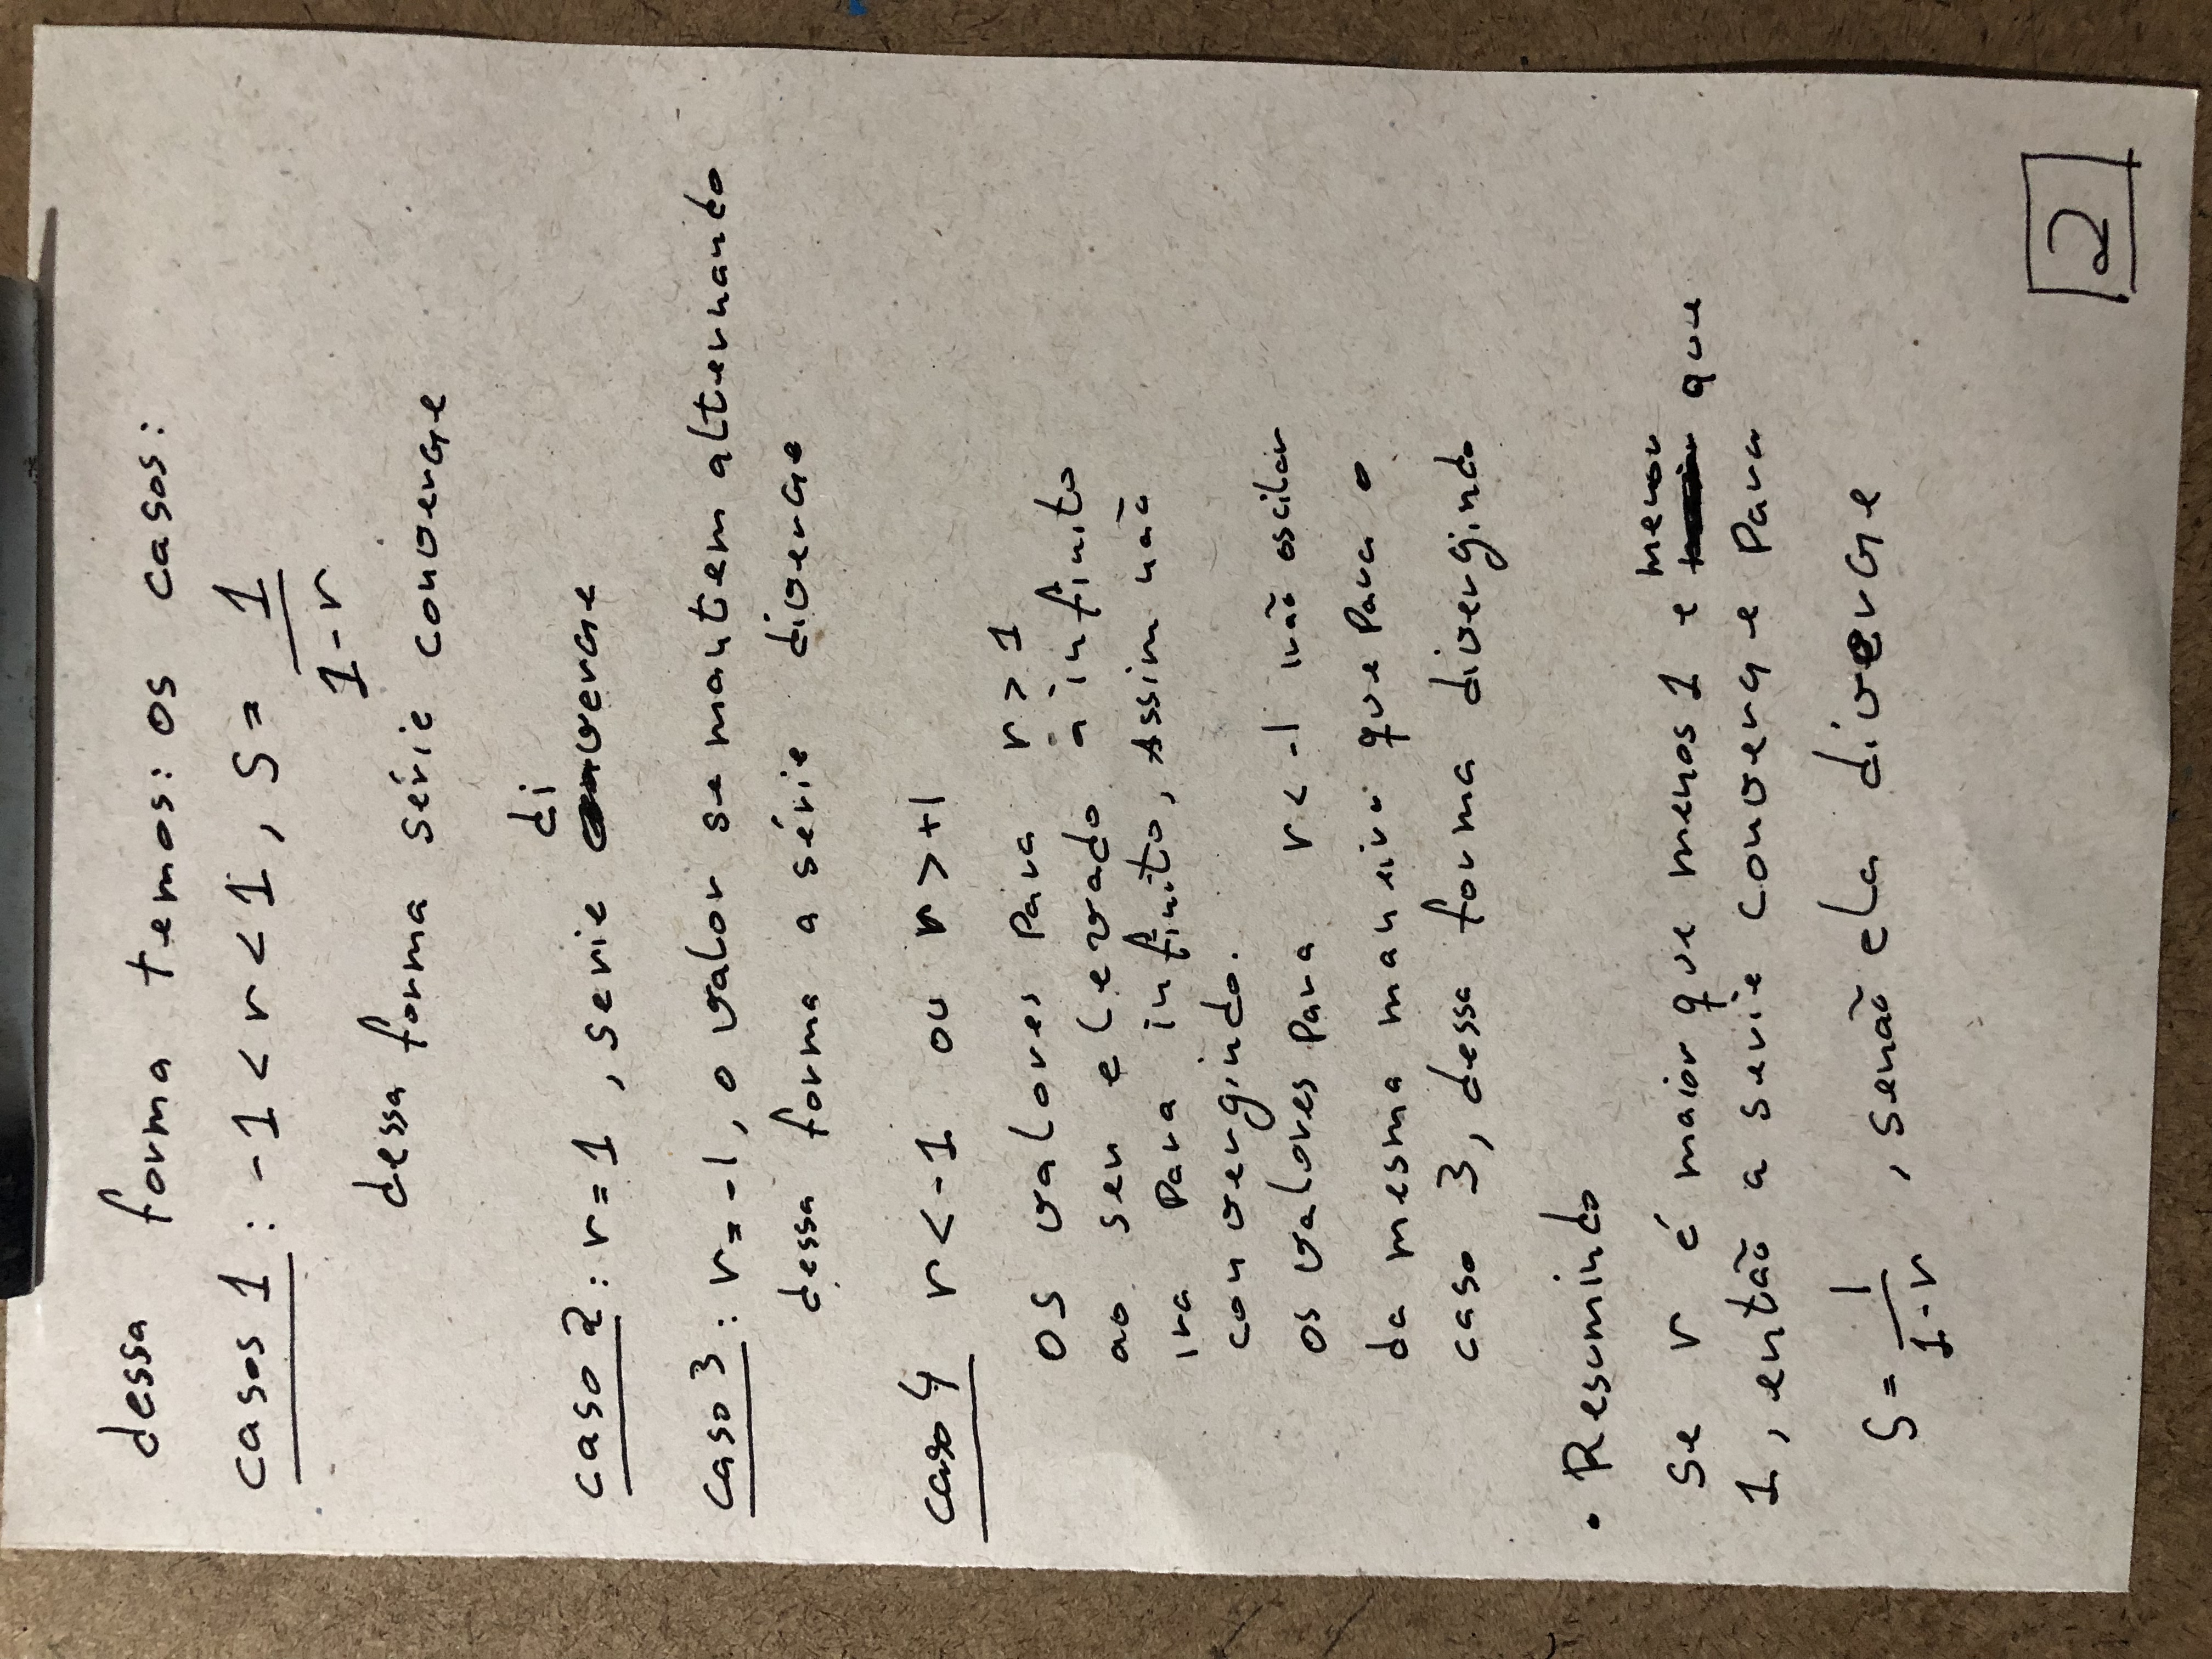 dessa forma temos: os casos:
casos 1 : -1 < r < 1, S = 1
1-r
dessa forma série converge
di
caso 2: r=1, serie verge
caso 3: r=-1, o valor se mantem alternando
dessa forma a série diverge
caso 4 r<-1 ou r>+1
os valores para r>1
ao ser elevado à infinito
ira para infinito, Assim não
convergindo.
os valores para r<-1 irão oscilar
da mesma maneira que para o
caso 3, dessa forma divergindo
• Resumindo
menor
se r é maior que menos 1 e que
1, então a serie converge para
S = 1
1-r , senão ela diverge
2